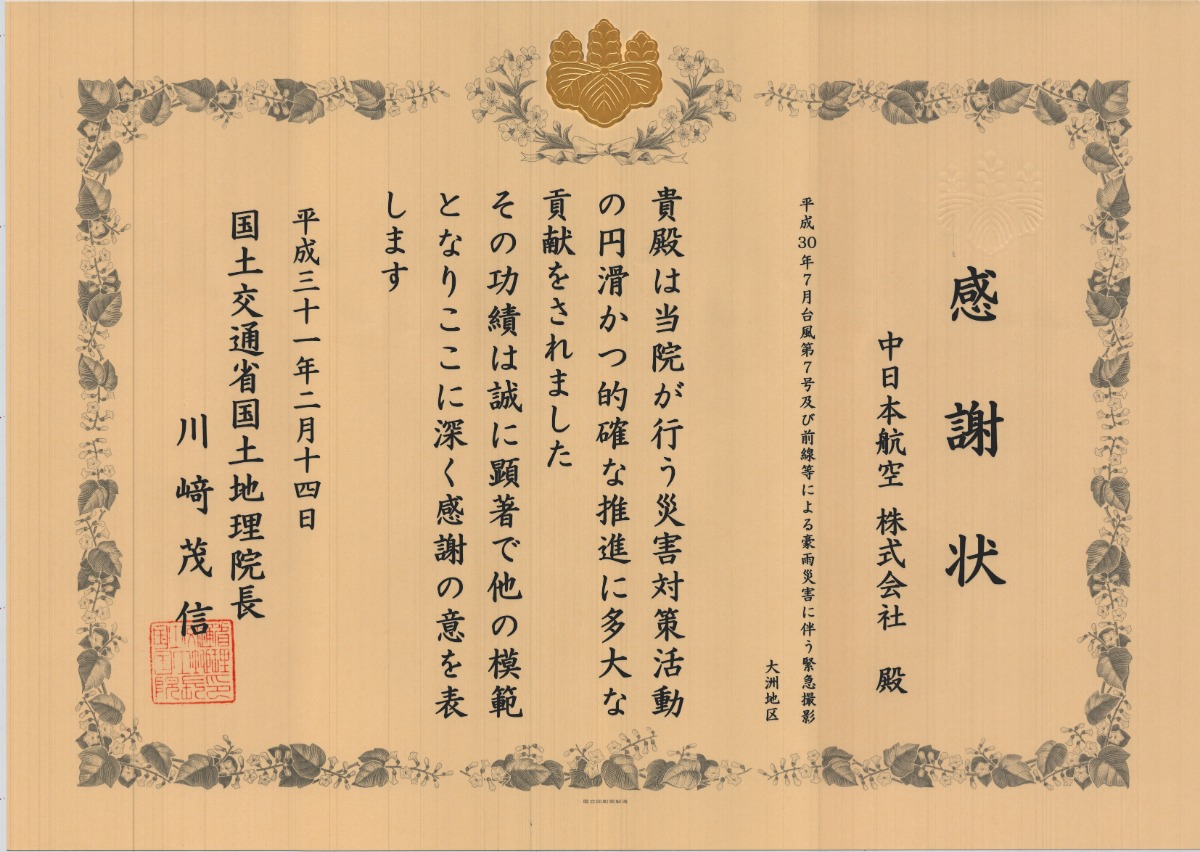 感謝状
中日本航空 株式会社 殿
平成30年7月台風第7号及び前線等による豪雨災害に伴う緊急撮影
大洲地区
貴殿は当院が行う災害対策活動
の円滑かつ的確な推進に多大な
貢献をされました
その功績は誠に顕著で他の模範
となりここに深く感謝の意を表
します
平成三十一年二月十四日
国土交通省国土地理院長
川﨑茂信